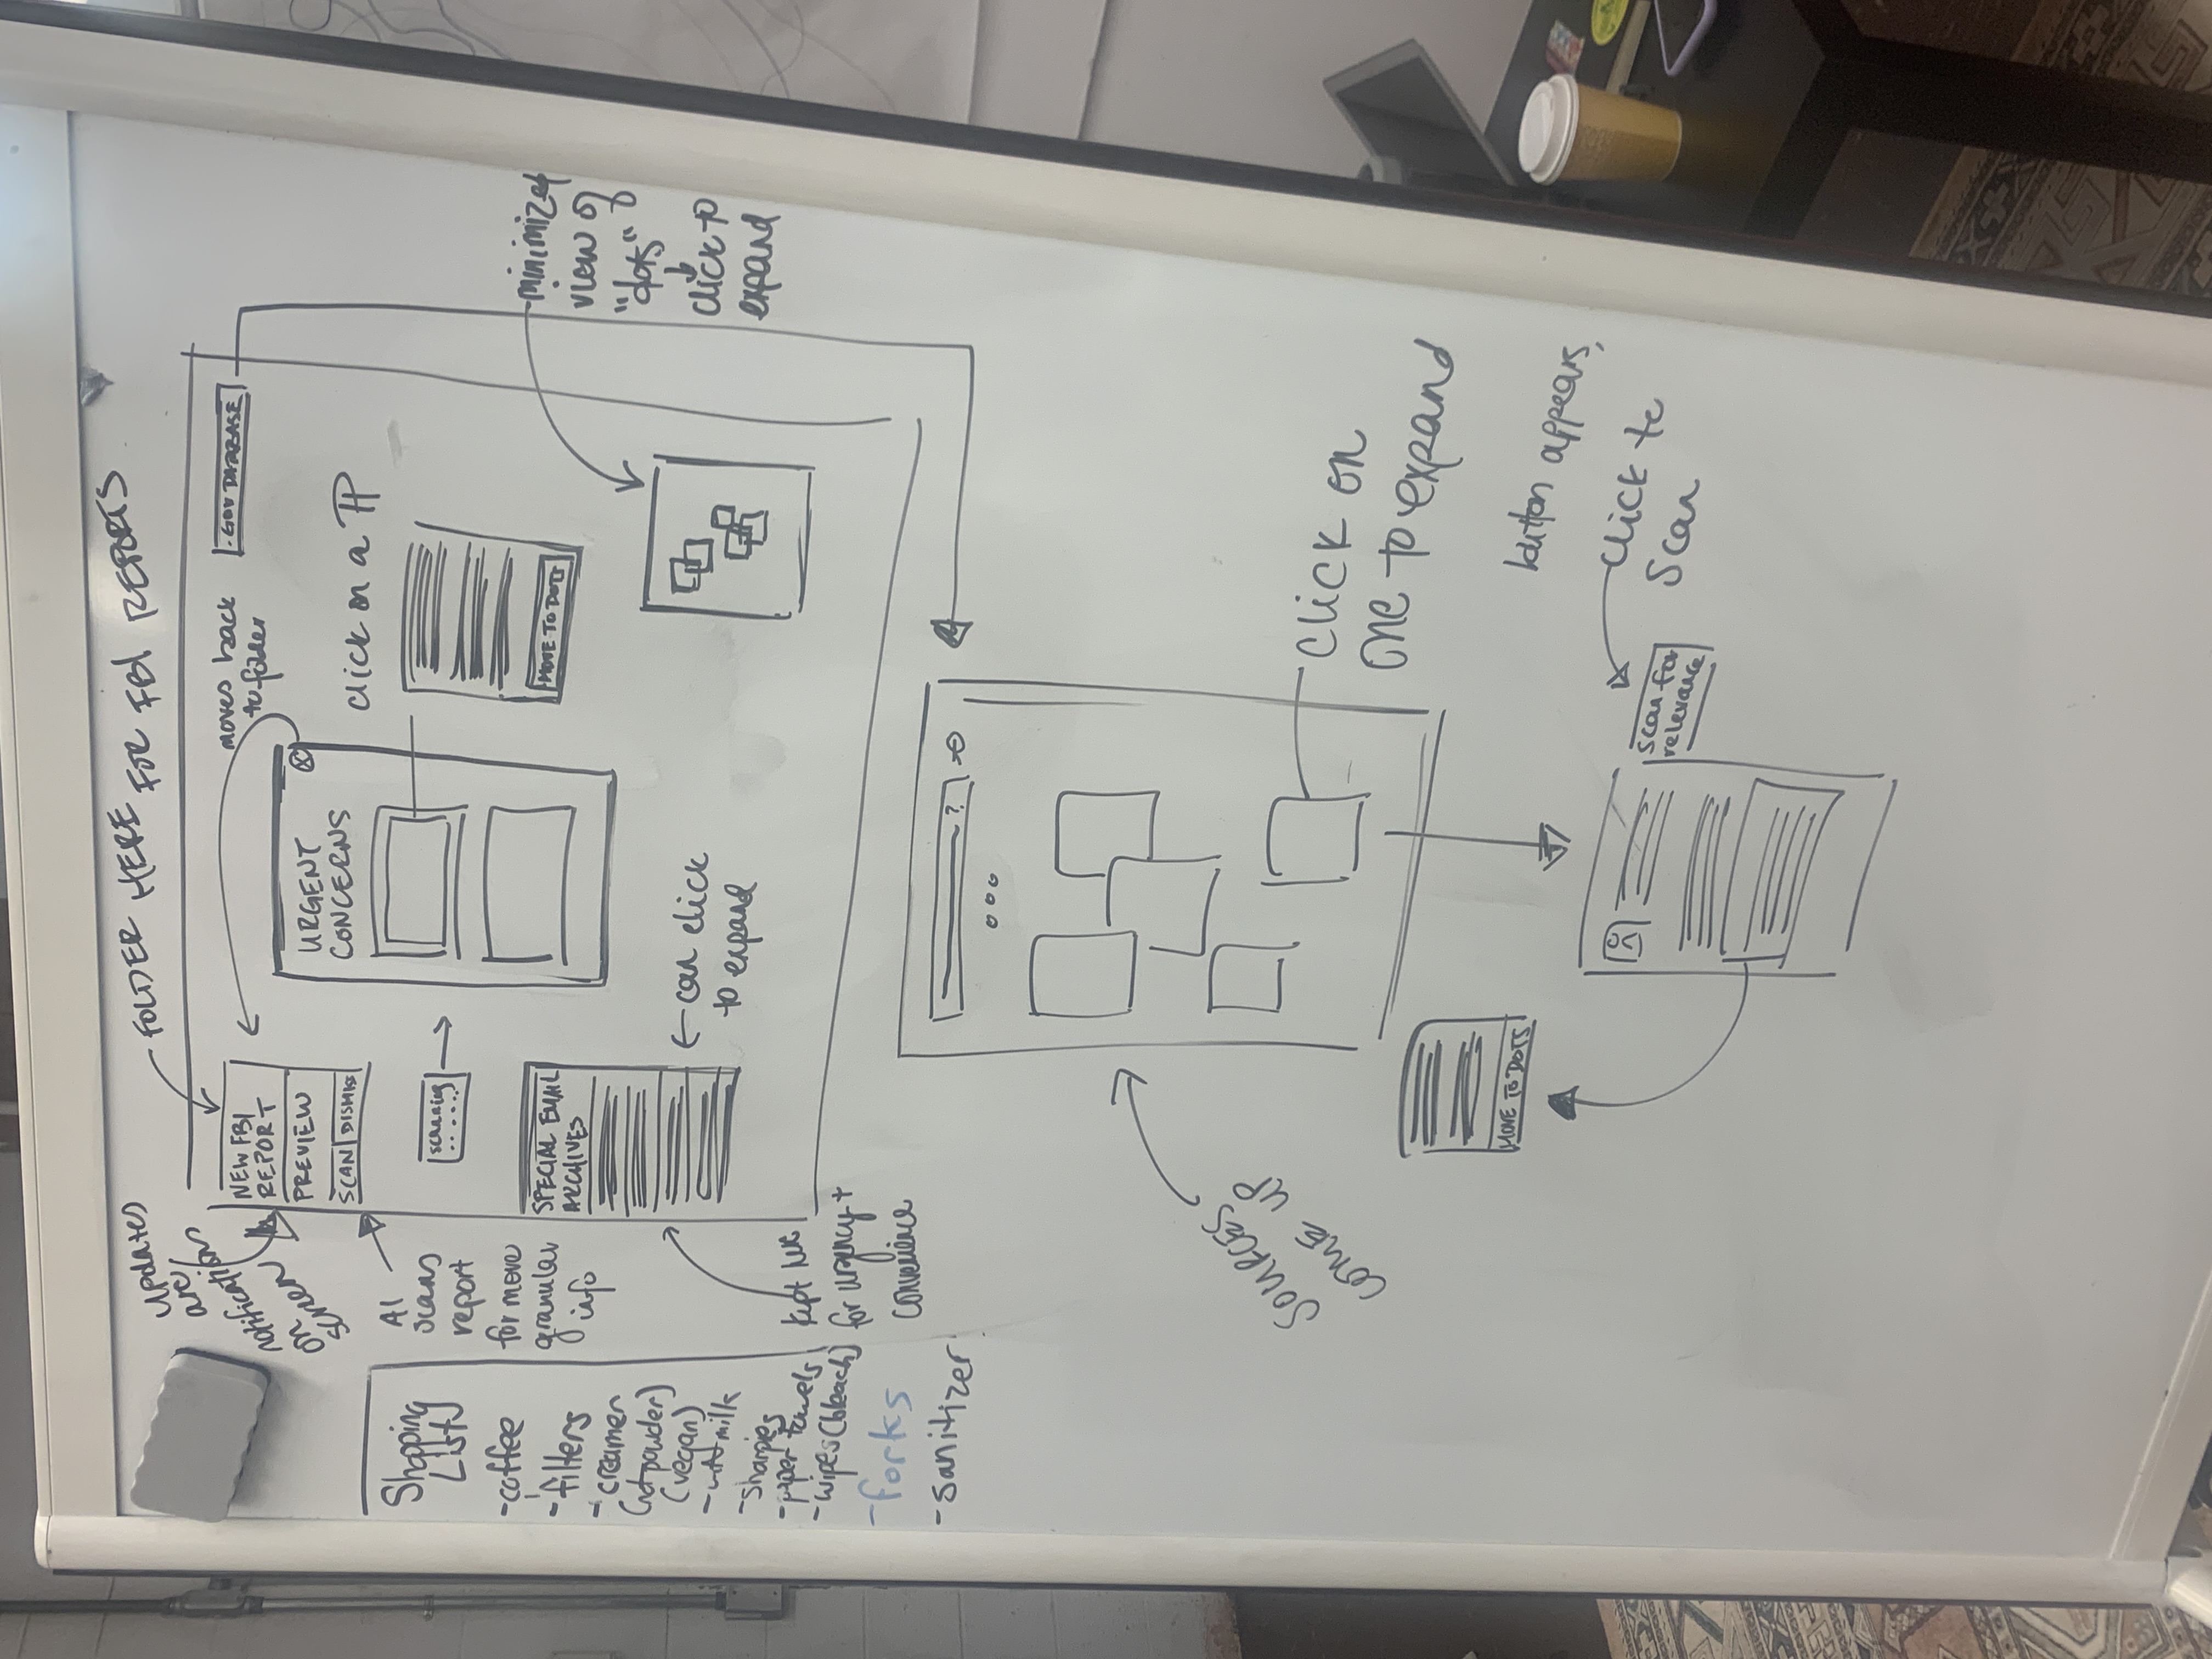 FOLDER HERE FOR FBI REPORTS
updates
are
notifications
on
screen
NEW FBI
REPORT
PREVIEW
SCAN DISMISS
moves back
to folder
.GOV DATABASE
URGENT
CONCERNS
click on a TP
AI
scans
report
for more
granular
info
scanning
.....
MOVE TO DOTS
SPECIAL EMAIL
ARCHIVES
can click
to expand
minimized
view of
"dots"
click to
expand
Kept
for urgency +
convenience
Shopping
List
-coffee
-filters
-creamer
(not powder)
(vegan)
milk
-sharpies
-paper towels
-wipes (bleach)
-forks
-sanitizer
?
SOURCES
COME UP
click on
one to expand
MOVE TO DOTS
button appears,
click to
scan
scan for
relevance